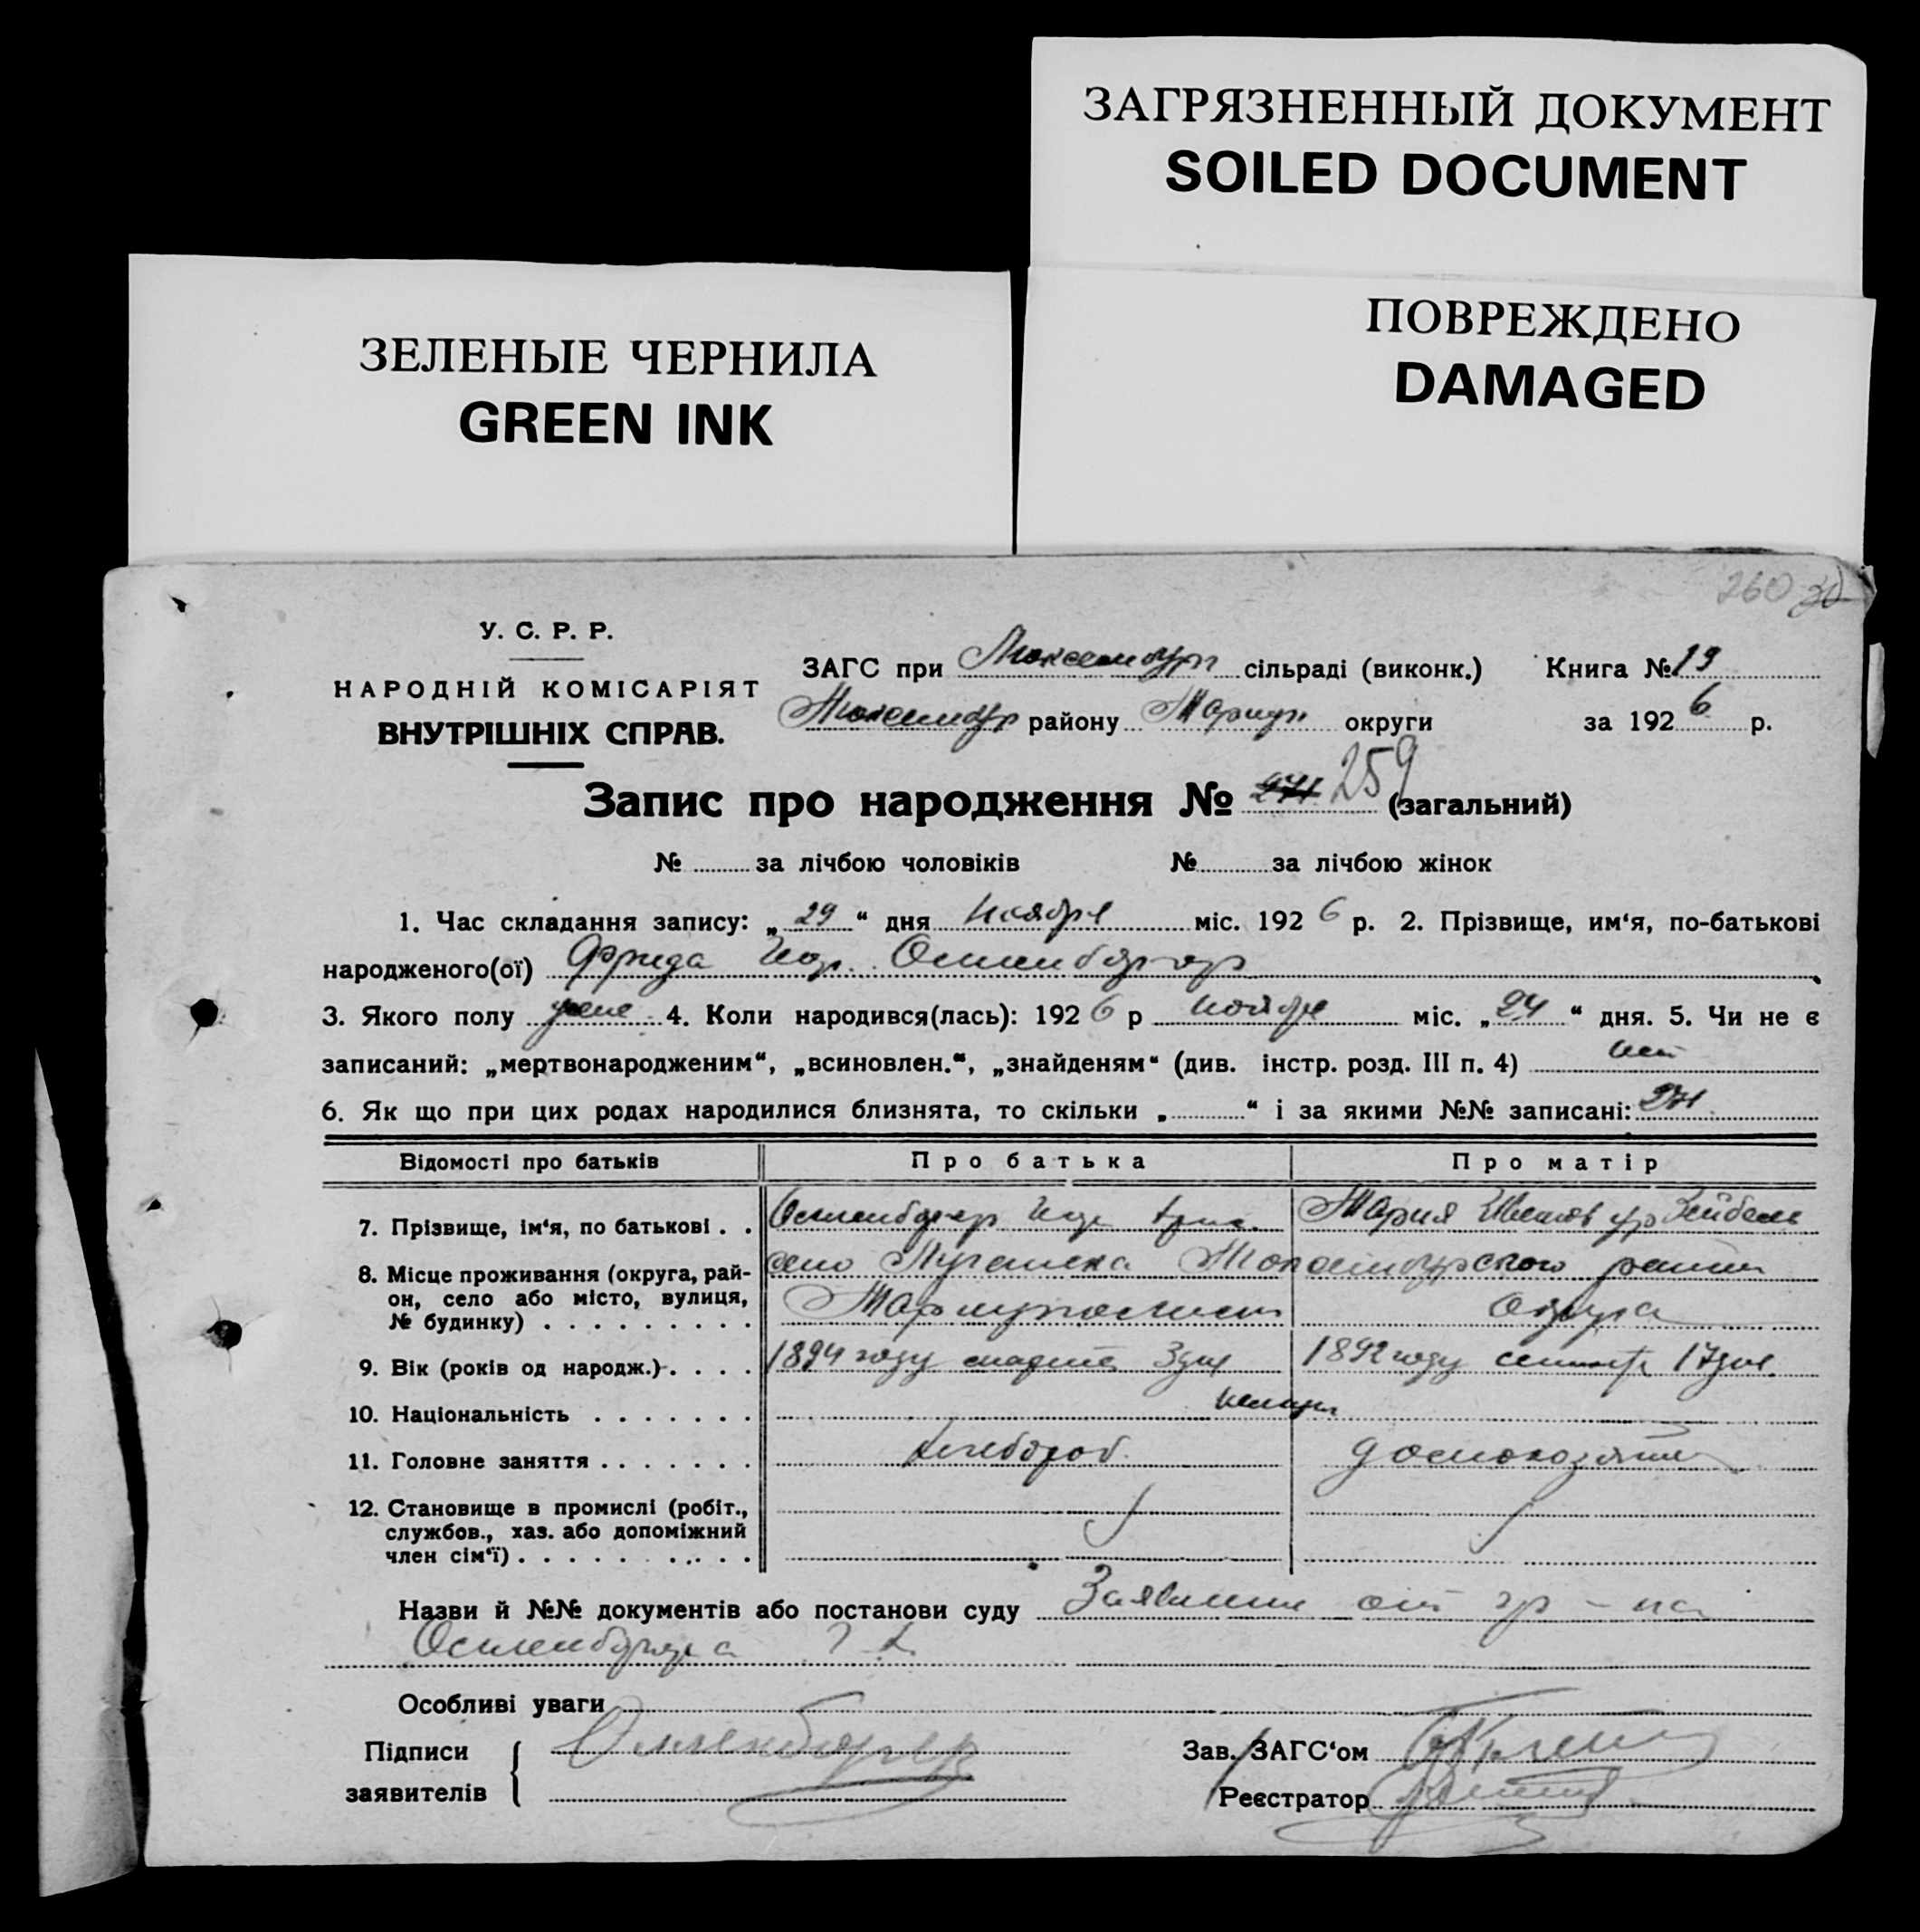 ЗАГРЯЗНЕННЫЙ ДОКУМЕНТ
SOILED DOCUMENT
ПОВРЕЖДЕНО
DAMAGED
ЗЕЛЕНЫЕ ЧЕРНИЛА
GREEN INK
260 30
У. С. Р. Р.
НАРОДНІЙ КОМІСАРІЯТ
ВНУТРІШНІХ СПРАВ.
ЗАГС при Люксембург сільраді (виконк.) Книга № 19
Люксембур району Мариуп округи за 1926 р.
Запис про народження № 271 259 (загальний)
№ за лічбою чоловіків № за лічбою жінок
1. Час складання запису: „29“ дня ноября міс. 1926 р. 2. Прізвище, им‘я, по-батькові
народженого(ої) Фрида
3. Якого полу жене 4. Коли народився(лась): 1926 р ноября міс. „24“ дня. 5. Чи не є
записаний: „мертвонародженим“, „всиновлен.“, „знайденям“ (див. інстр. розд. III п. 4) нет
6. Як що при цих родах народилися близнята, то скільки „ “ і за якими №№ записані: 271
Відомості про батьків Про батька Про матір
7. Прізвище, ім‘я, по батькові . . Мария Зейбель
8. Місце проживання (округа, рай-
он, село або місто, вулиця,
№ будинку) село Люксембурского
округа
9. Вік (років од народж.) 1894 году марта 3 дня 1892 году 17 дня
10. Національність немцы
11. Головне заняття хлебороб. домохозяйка
12. Становище в промислі (робіт.,
службов., хаз. або допоміжний
член сім‘ї)
Назви й №№ документів або постанови суду Заявление от гр-на
Особливі уваги
Підписи
заявителів
Зав. ЗАГС‘ом
Реєстратор